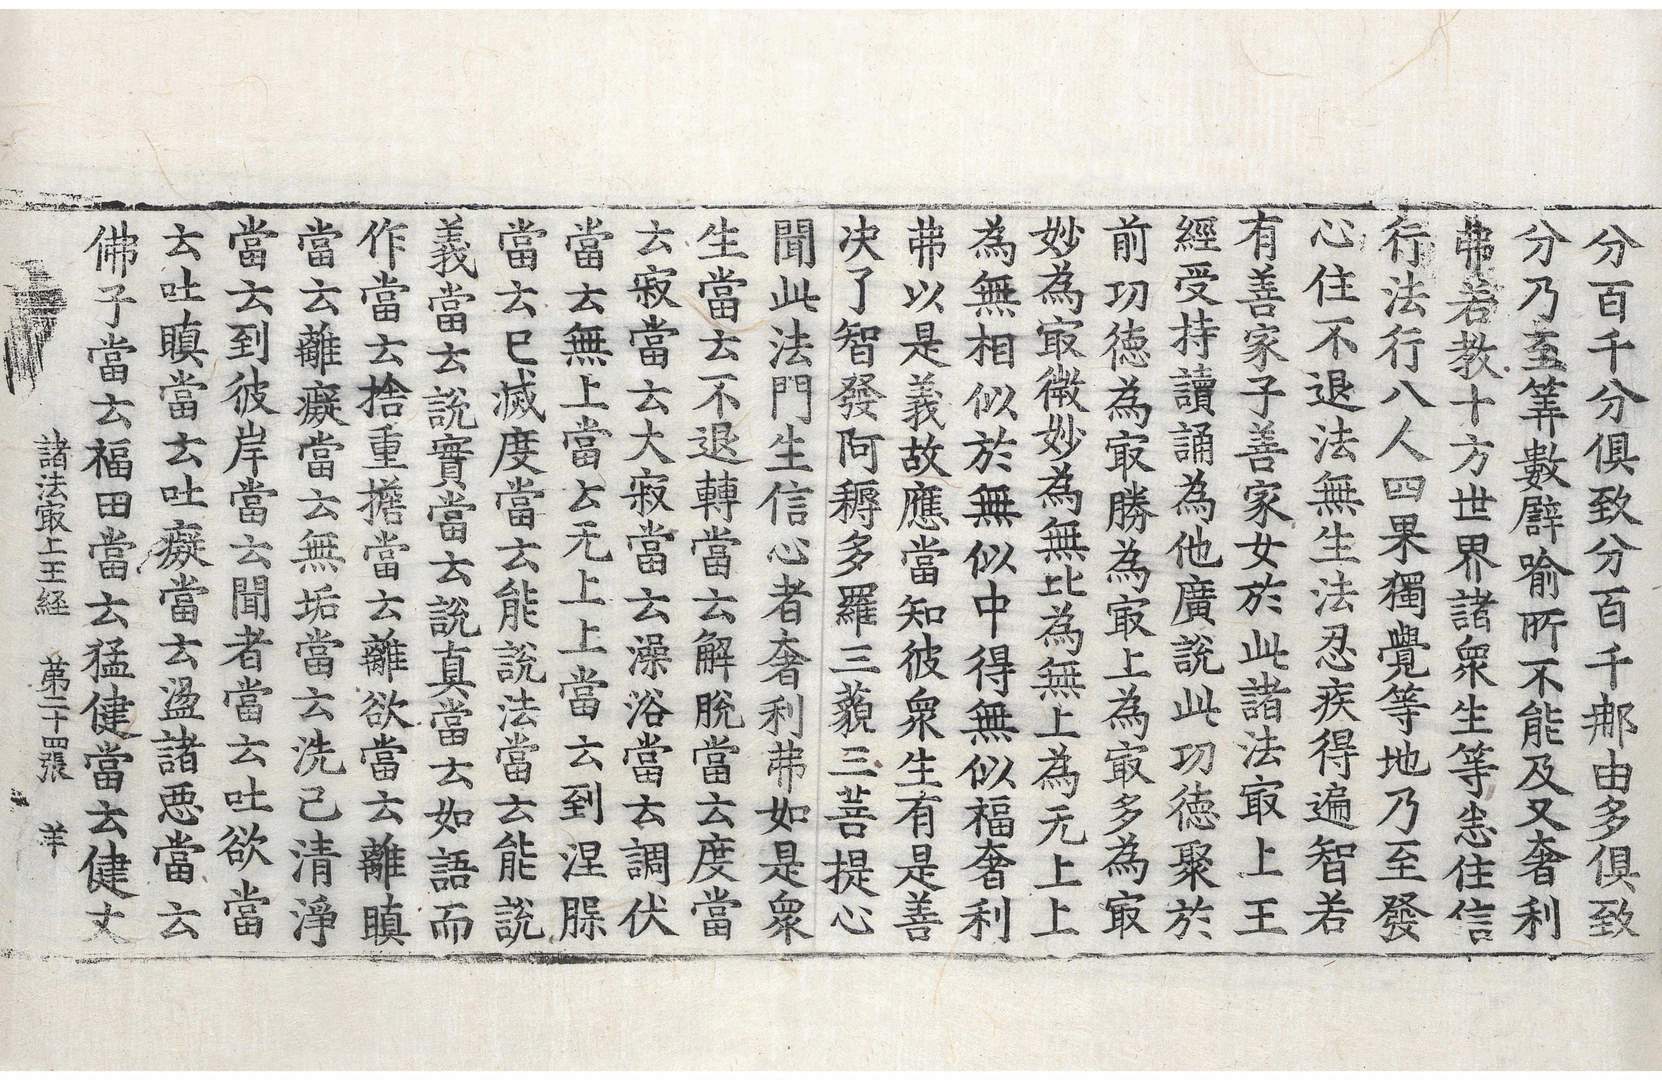 分百千分俱致分百千那由多俱致
分乃至筭數譬喻所不能及又奢利
弗若教十方世界諸衆生等悉住信
行法行八人四果獨覺等地乃至發
心住不退法無生法忍疾得遍智若
有善家子善家女於此諸法㝡上王
經受持讀誦為他廣說此功德聚於
前功德為㝡勝為㝡上為㝡多為㝡
妙為㝡微妙為無比為無上為无上上
為無相似於無似中得無似福奢利
弗以是義故應當知彼衆生有是善
决了智發阿耨多羅三藐三菩提心
聞此法門生信心者奢利弗如是衆
生當去不退轉當去解脫當去度當
去寂當去大寂當去澡浴當去調伏
當去無上當去无上上當去到涅槃
當去已滅度當去能說法當去能說
義當去說實當去說真當去如語而
作當去捨重擔當去離欲當去離瞋
當去離癡當去無垢當去洗已清淨
當去到彼岸當去聞者當去吐欲當
去吐瞋當去吐癡當去盪諸惡當去
佛子當去福田當去猛健當去健丈
諸法㝡上王経 第二十四張 羊